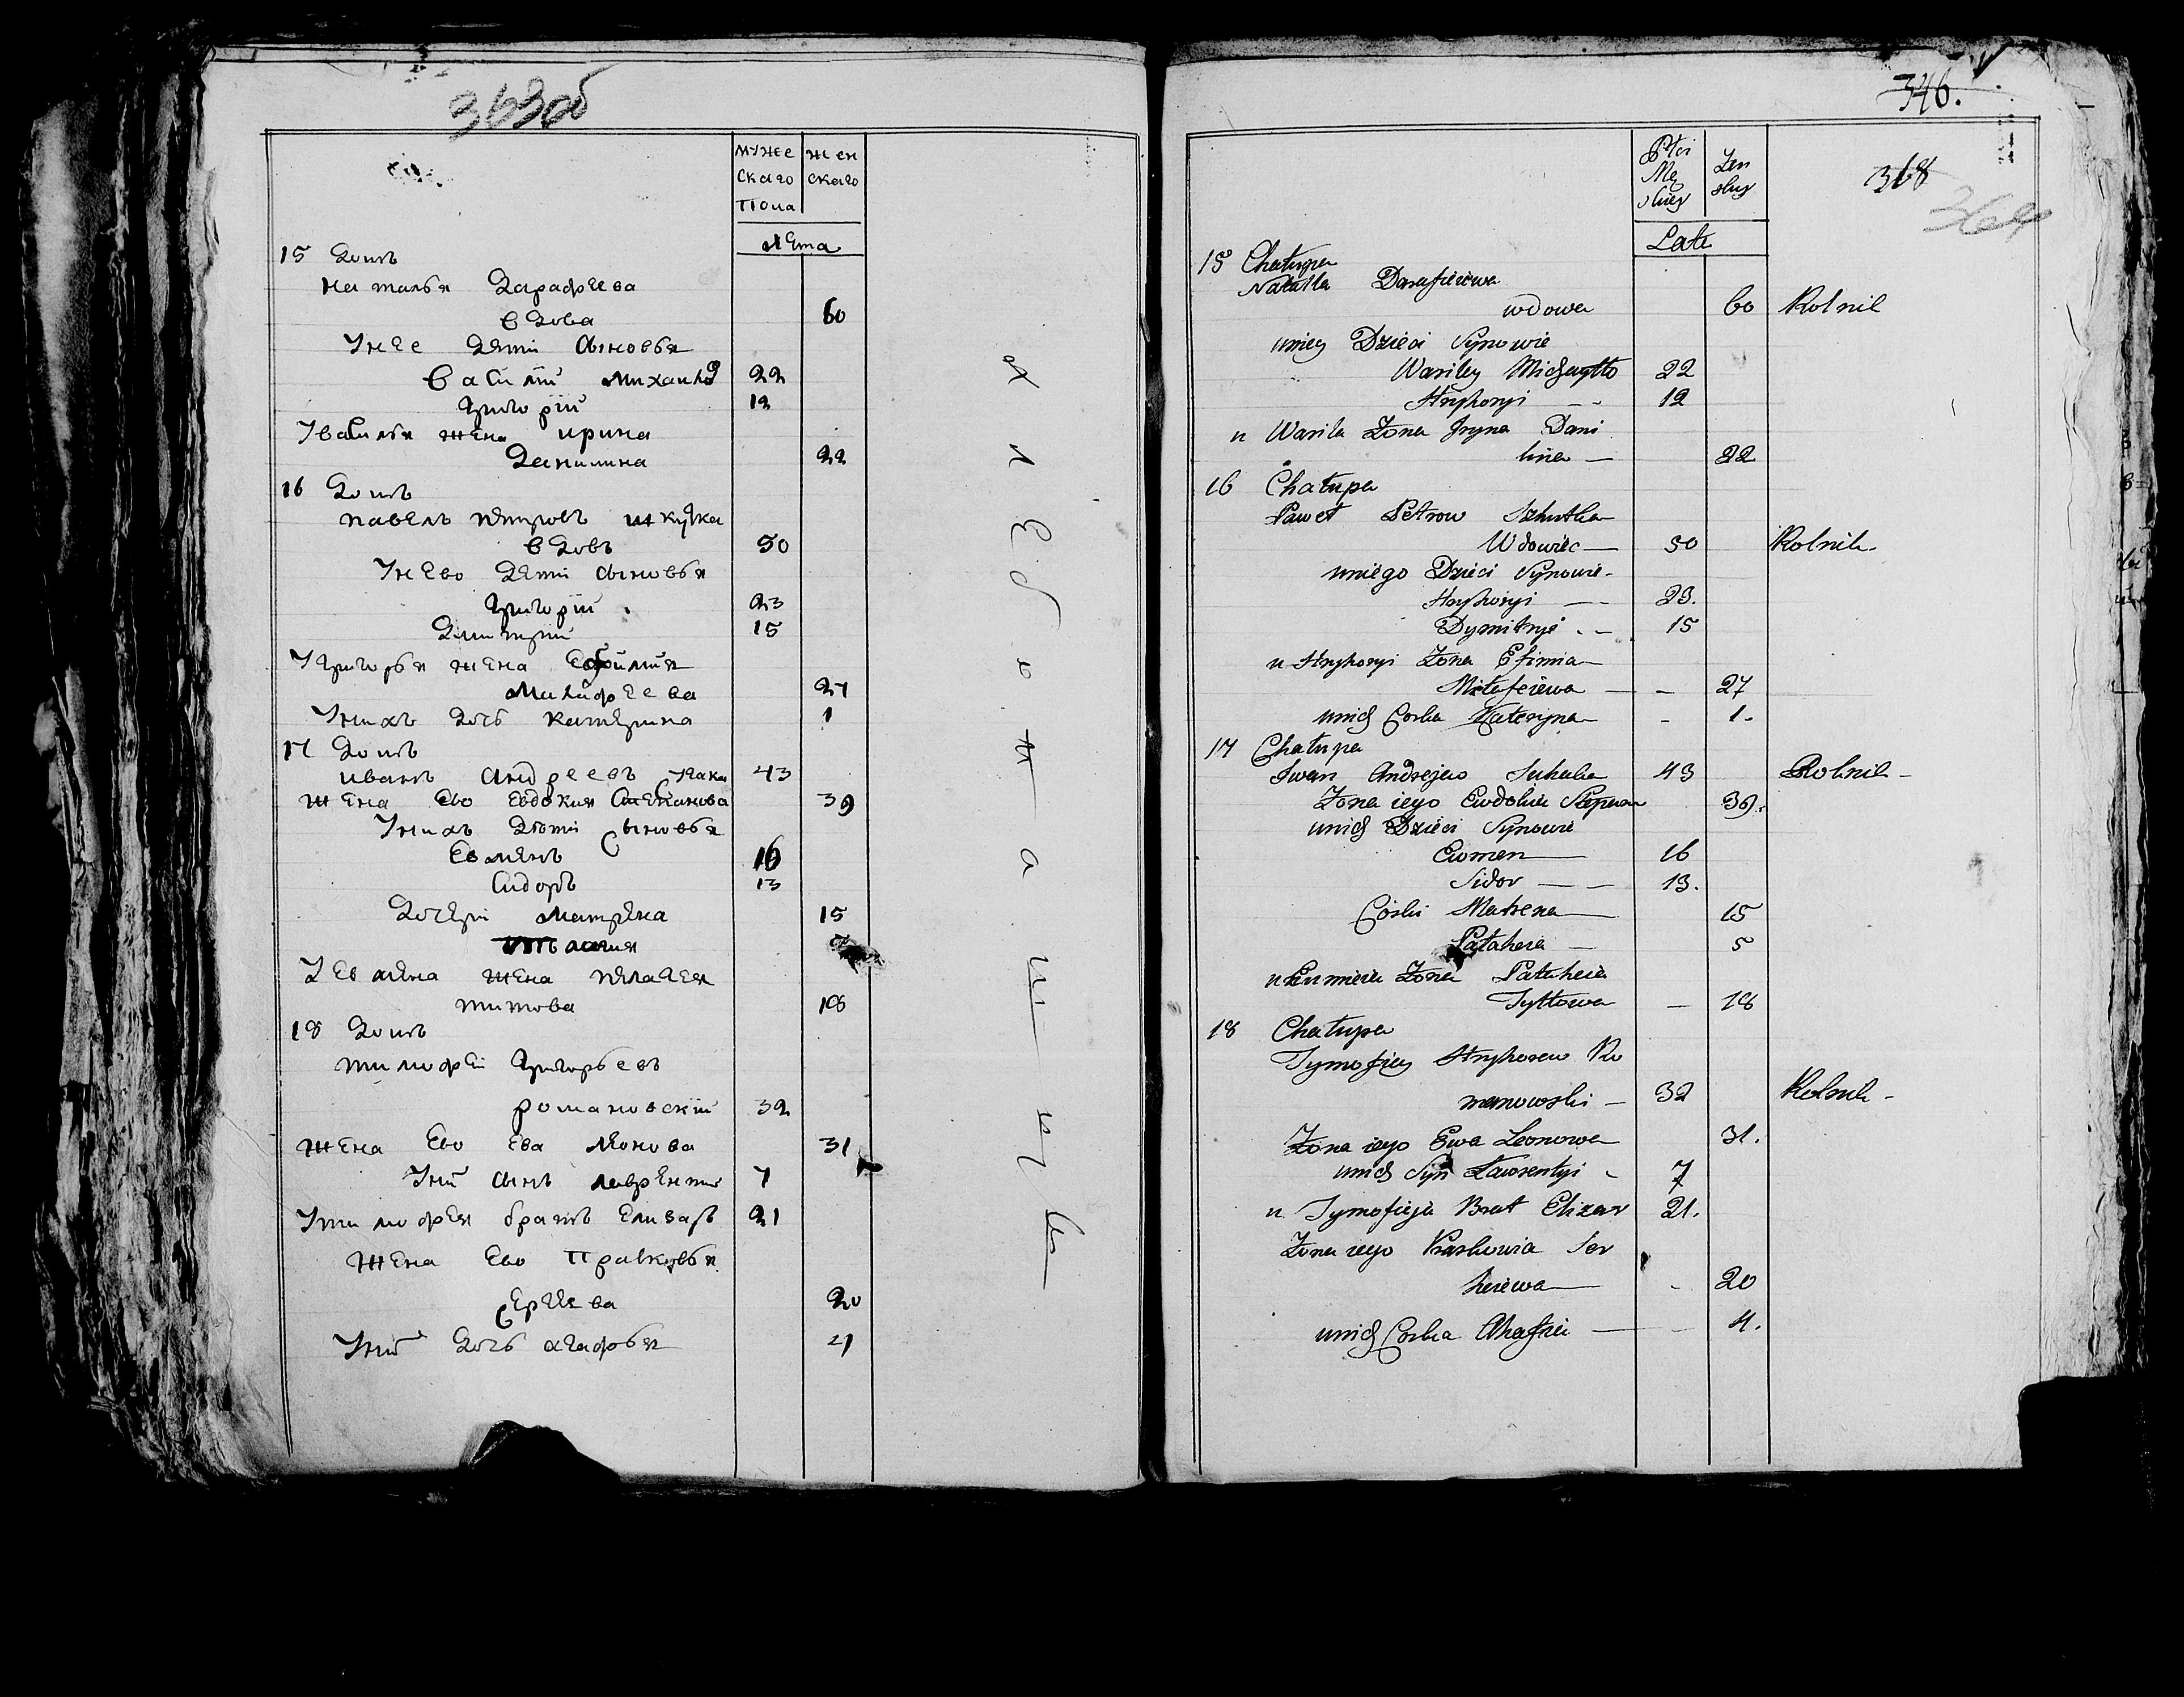 363об
муже ско го пола
жен скаго
лета
15 домъ
наталья дарафеева
вдова 60
унее дети сыновья
василий михайло 22
григорий 12
уваси лья жена ирина
данилина 22
16 домъ
павелъ петровъ шкутка
вдовъ 50
унего дети сыновья
григорий 23
дмитрий 15
угригорья жена ефимия
малафеева 27
унихъ дочь катерина 1
17 домъ
иванъ андреевъ 43
жена ево евдокия степанова 39
унихъ дети сыновья
евменъ 16
сидоръ 13
дочери матрена 15
уевмена жена пелагея
титова 18
18 домъ
тимофей григорьевъ
романовский 32
жена ево ева леонова 31
уний сынъ лаврентий 7
утимофея братъ елизаръ 21
жена ево прасковья
сергеева 20
уний дочь агафья 4
хлебопашецъ
346.
368
364
Płci Mę skiey
Żen skiey
Lata
15 Chałupa
Natalla Darafiejewa
wdowa 60 Rolnik
uniey Dzieci Synowie
Wasiley Michayłło 22
Hryhoryi 12
u Wasila Żona Jryna Dani
lina 22
16 Chałupa
Paweł Petrow Szkutka
Wdowiec 50 Rolnik
uniego Dzieci Synowie
Hryhoryi 23.
Dymitryi 15
u Hryhoryi Żona Efimia
Miłafeiewa 27
unich Corka Kateryna 1.
17 Chałupa
Iwan Andrejew 43 Rolnik
Żona iego Ewdokia Stepan 39.
unich Dzieci Synowie
Ewmen 16
Sidor 13.
Córki Matrena 15
Pałaheia 5
u Eumiena Żona Pałaheia
Tyttowa 18
18 Chałupa
Tymofiey Hryhorew Ro
manowski 32 Rolnik
Żona iego Ewa Leonowa 31.
unich Syn Ławrentyi 7
u Tymofieja Brat Elizar 21.
Żona iego Praskowia Ser
heiewa 20
unich Corka Ahafiia 4.